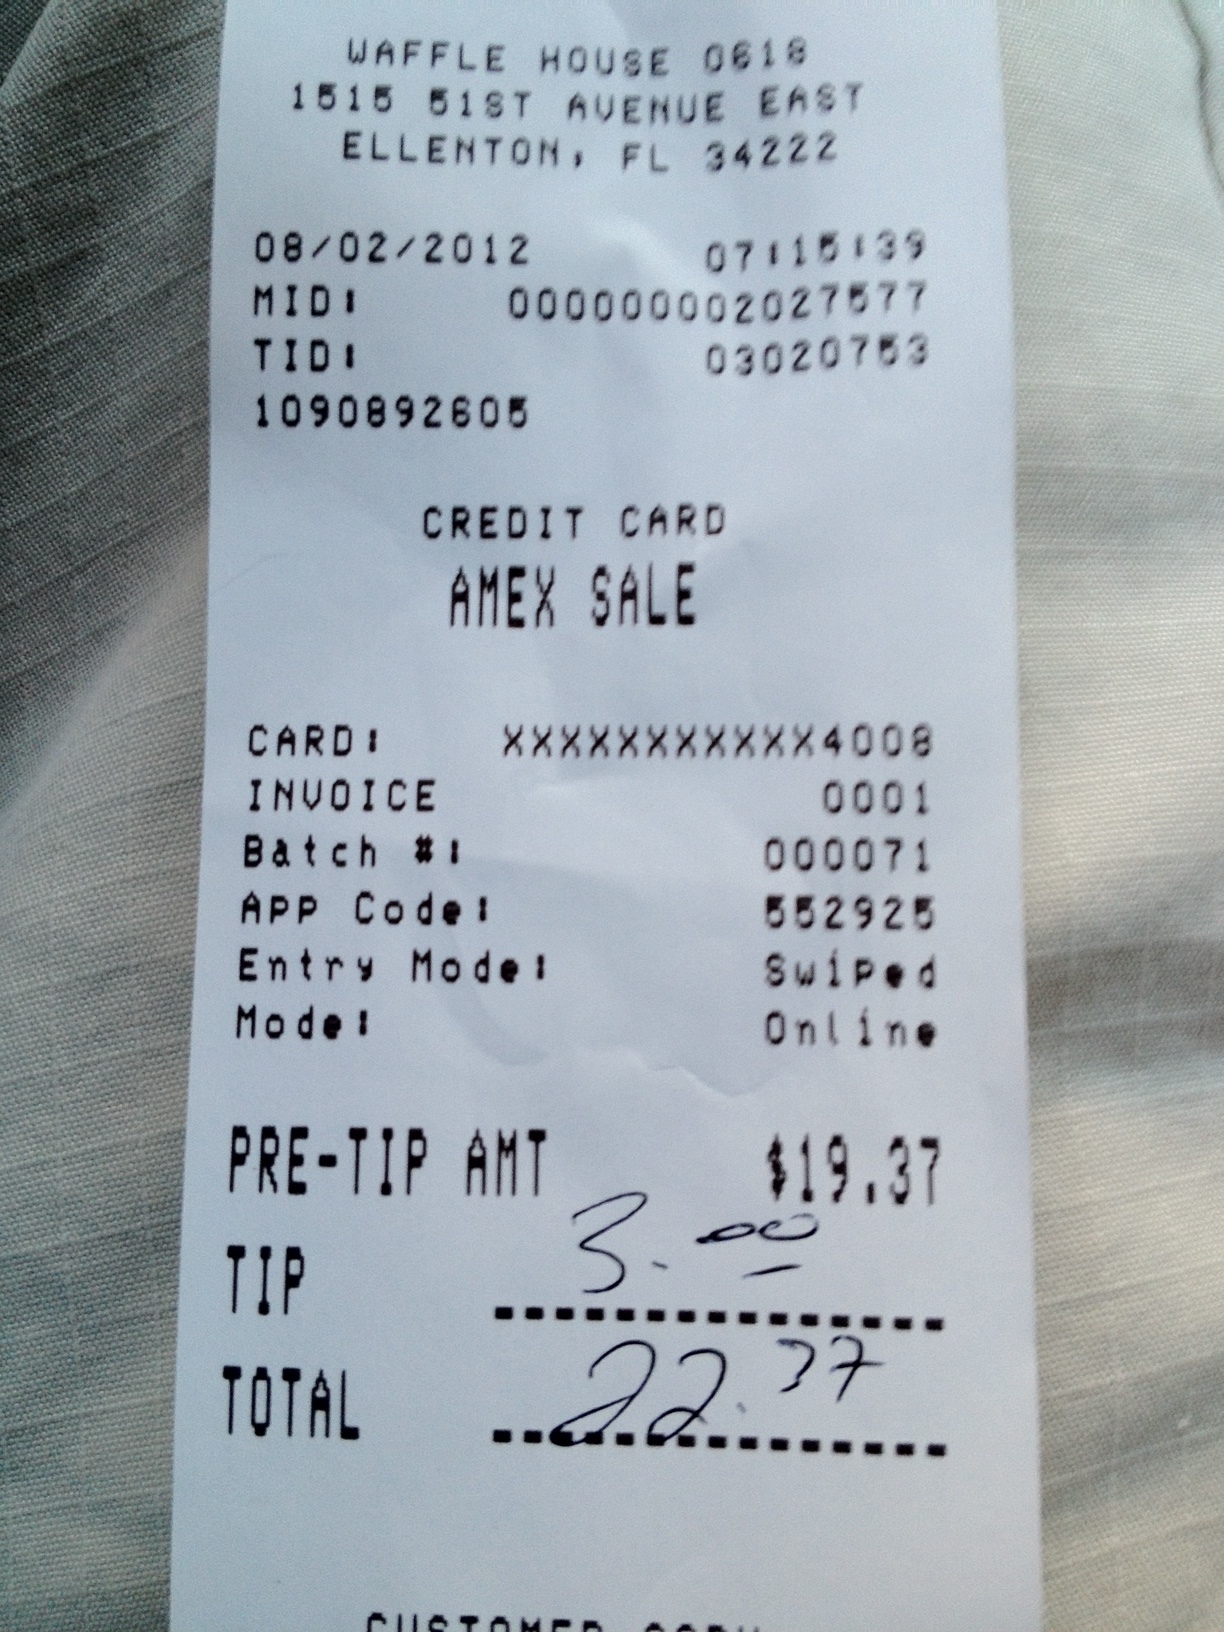 WAFFLE HOUSE 0618
1515 51ST AVENUE EAST
ELLENTON, FL 34222
08/02/2012 07:15:39
MID: 000000002027577
TID: 03020753
1090892605
CREDIT CARD
AMEX SALE
CARD: XXXXXXXXXXX4008
INVOICE 0001
Batch #: 000071
APP Code: 552925
Entry Mode: Swiped
Mode: Online
PRE-TIP AMT $19.37
TIP 3.00
TOTAL 22.37
CUSTOMER COPY